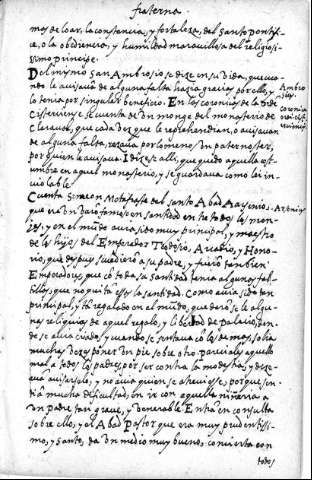 fraterna.
mos de loar, la constancia, y fortaleza, del santo pontifi-
ce, o la obediencia, y humildad maravillosa del religiosi-
simo principe.
Del mismo San Ambrosio se dize en su vida, que quan-
do le avisava de alguna falta hazia gracias por ello, y
lo tenia por singular beneficio. En las coronicas de la orde
Cisterciense se cuenta de un monge del monasterio de
Claraval, que cada vez que le reprehendian, o avisavan
de alguna falta, rezava por lo menos un pater noster,
por quien le avisava. I dizese alli, que quedo aquella costu-
umbre en aquel monasterio, y se guardava como lei in-
violable.
Cuenta Simeon Metafraste del santo Abad Arsenio,
que era un varo famoso en santidad entre todos los mon-
jes, y en el mundo avia sido muy principal, y maestro
de los hijos del Emperador Theodosio, Arcadio, y Hono-
rio, que despues sucediero a su padre, y fuero tambien
Emperadores, que co toda su santidad tenia algunos fal-
tillas, que no quita esto la santidad. Como avia sido tan
principal, y ta regalado en el mundo, quedaro se le algu-
nas reliquias de aquel regalo, y libertad de palacio, don-
de se avia criado, y quando se sentava co los demas, solia
muchas vezes poner un pie sobre otro pareciales aquello
mal a todos los padres, por ser contra la modestia, y dese-
ava avisarselo, y no avia quien se atreviese, porque sen-
tia mucha dificultad, en ir con aquella niñeria a
un padre tan grave, y venerable. Entra en consulta
sobre ello, y el Abad Pastor que era muy prudentissi-
mo, y santo, da un medio muy bueno, concierta con
todos
Ambro
sio.
Coronica
Arsenio